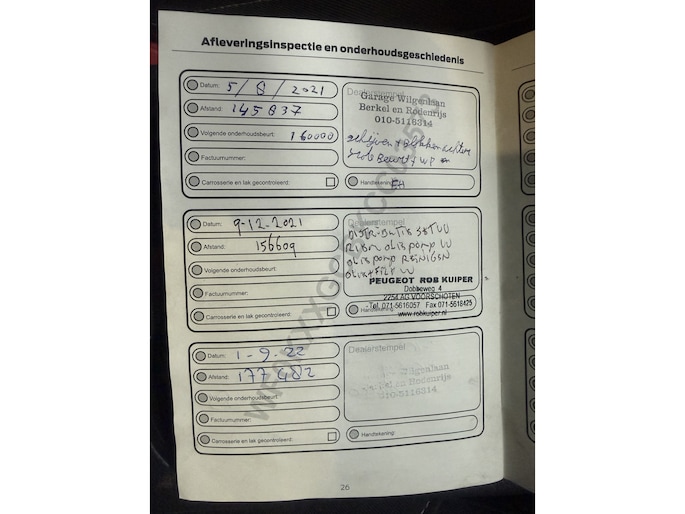 Afleveringsinspectie en onderhoudsgeschiedenis
Datum: 5/8/2021
Afstand: 145837
Volgende onderhoudsbeurt: 160000
Factuurnummer:
Carrosserie en lak gecontroleerd:
Dealerstempel
Garage Wilgenlaan
Berkel en Rodenrijs
010-5116314
schijven + blokken achter
Beurt + WP
Handtekening: EH
Datum: 9-12-2021
Afstand: 156609
Volgende onderhoudsbeurt:
Factuurnummer:
Carrosserie en lak gecontroleerd:
Dealerstempel
DISTRIBUTIE SET VV
RIEM OLIEPOMP VV
OLIEPOMP REINIGEN
OLIE + FILT VV
PEUGEOT ROB KUIPER
Dobbeweg 4
2254 AG VOORSCHOTEN
Tel. 071-5616057 Fax 071-5618425
www.robkuiper.nl
Handtekening:
Datum: 1-9-22
Afstand: 177482
Volgende onderhoudsbeurt:
Factuurnummer:
Carrosserie en lak gecontroleerd:
Dealerstempel
Wilgenlaan
Berkel en Rodenrijs
010-5116314
Handtekening:
26